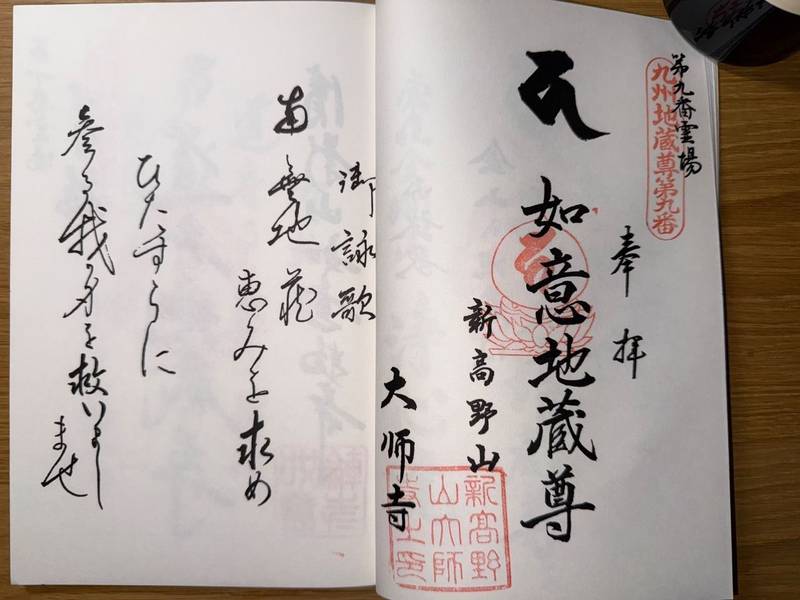 第九番霊場
九州地蔵尊第九番
奉拝
如意地蔵尊
新高野山
大师寺
新高野
山大師
御詠歌
南無地蔵
恵みを求め
ひたすらに
参る我が身を救いまし
ませ